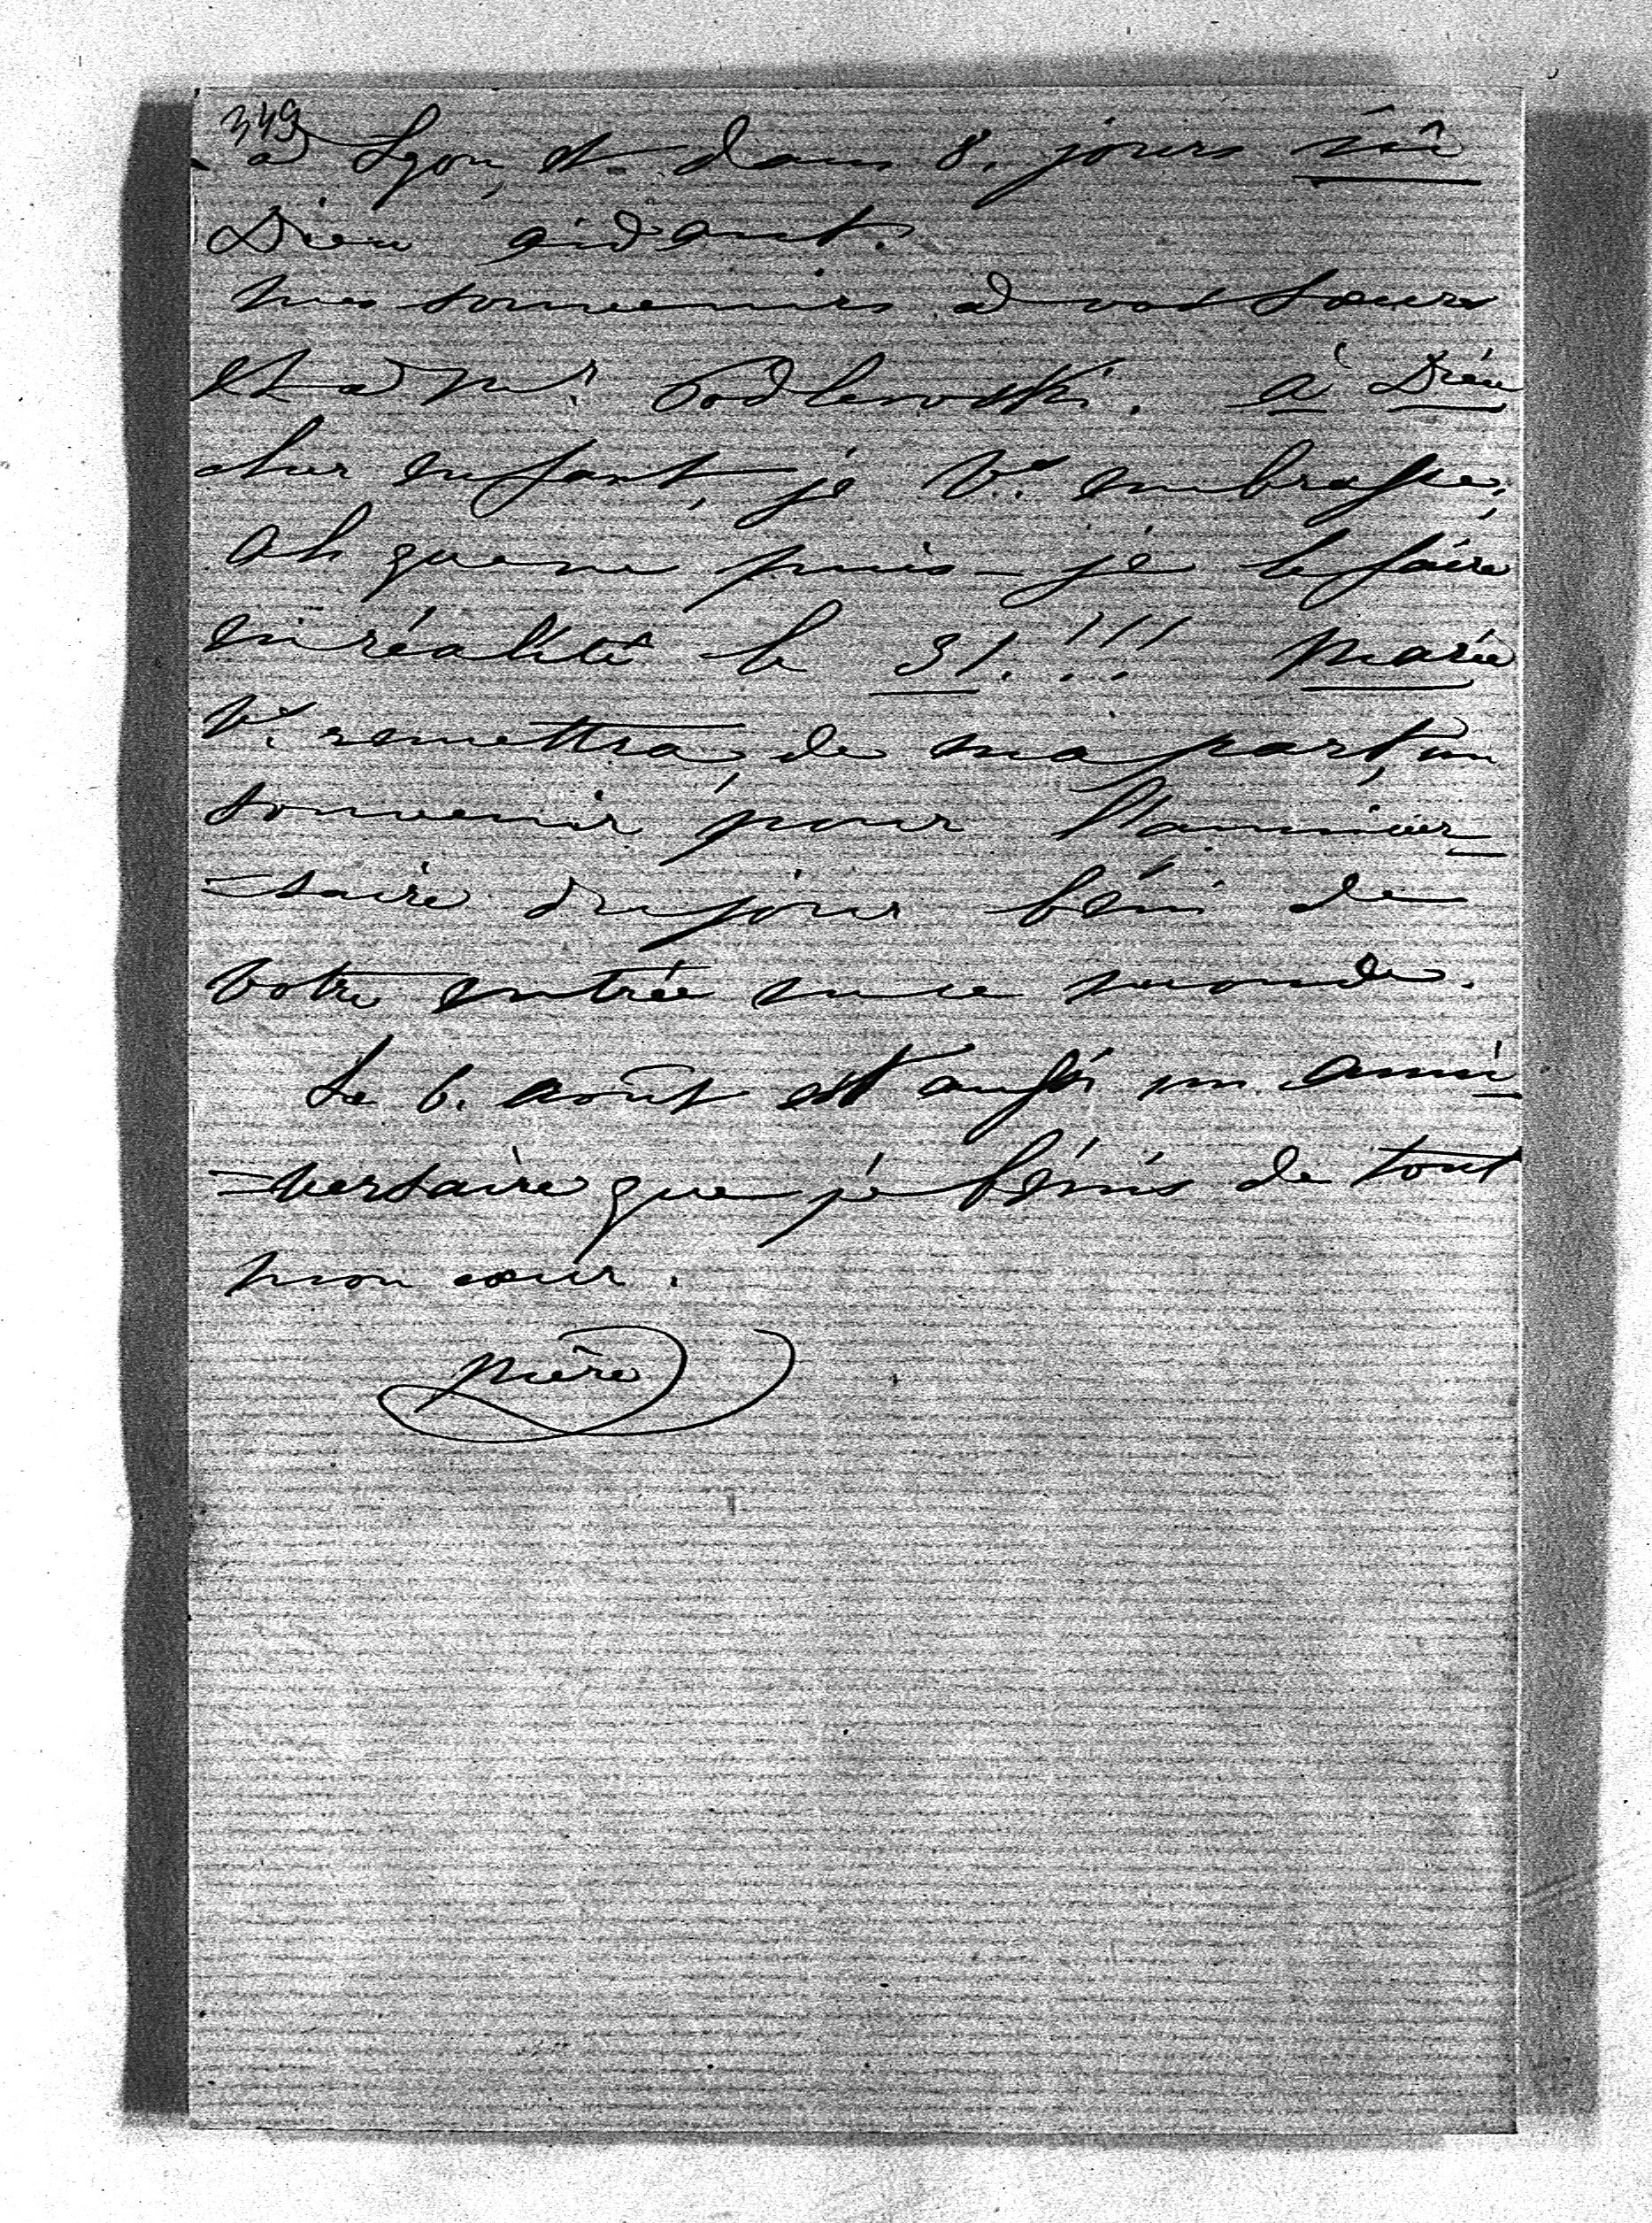 349
à Lyon, et dans 8. jours ici
Dieu aidant.
Mes souvenirs à vos sœurs
et à Mr. Podlewski. à Dieu
cher enfant, je Vs. embrasse,
Ah que ne puis-je le faire
en réalité le 31.!!! Marie
Vs. remettra, de ma part, un
souvenir pour l'anniver-
-saire du jour béni de
votre entrée en ce monde.
Le 6. août est aussi un anni-
-versaire que je bénis de tout
mon cœur.
Mère